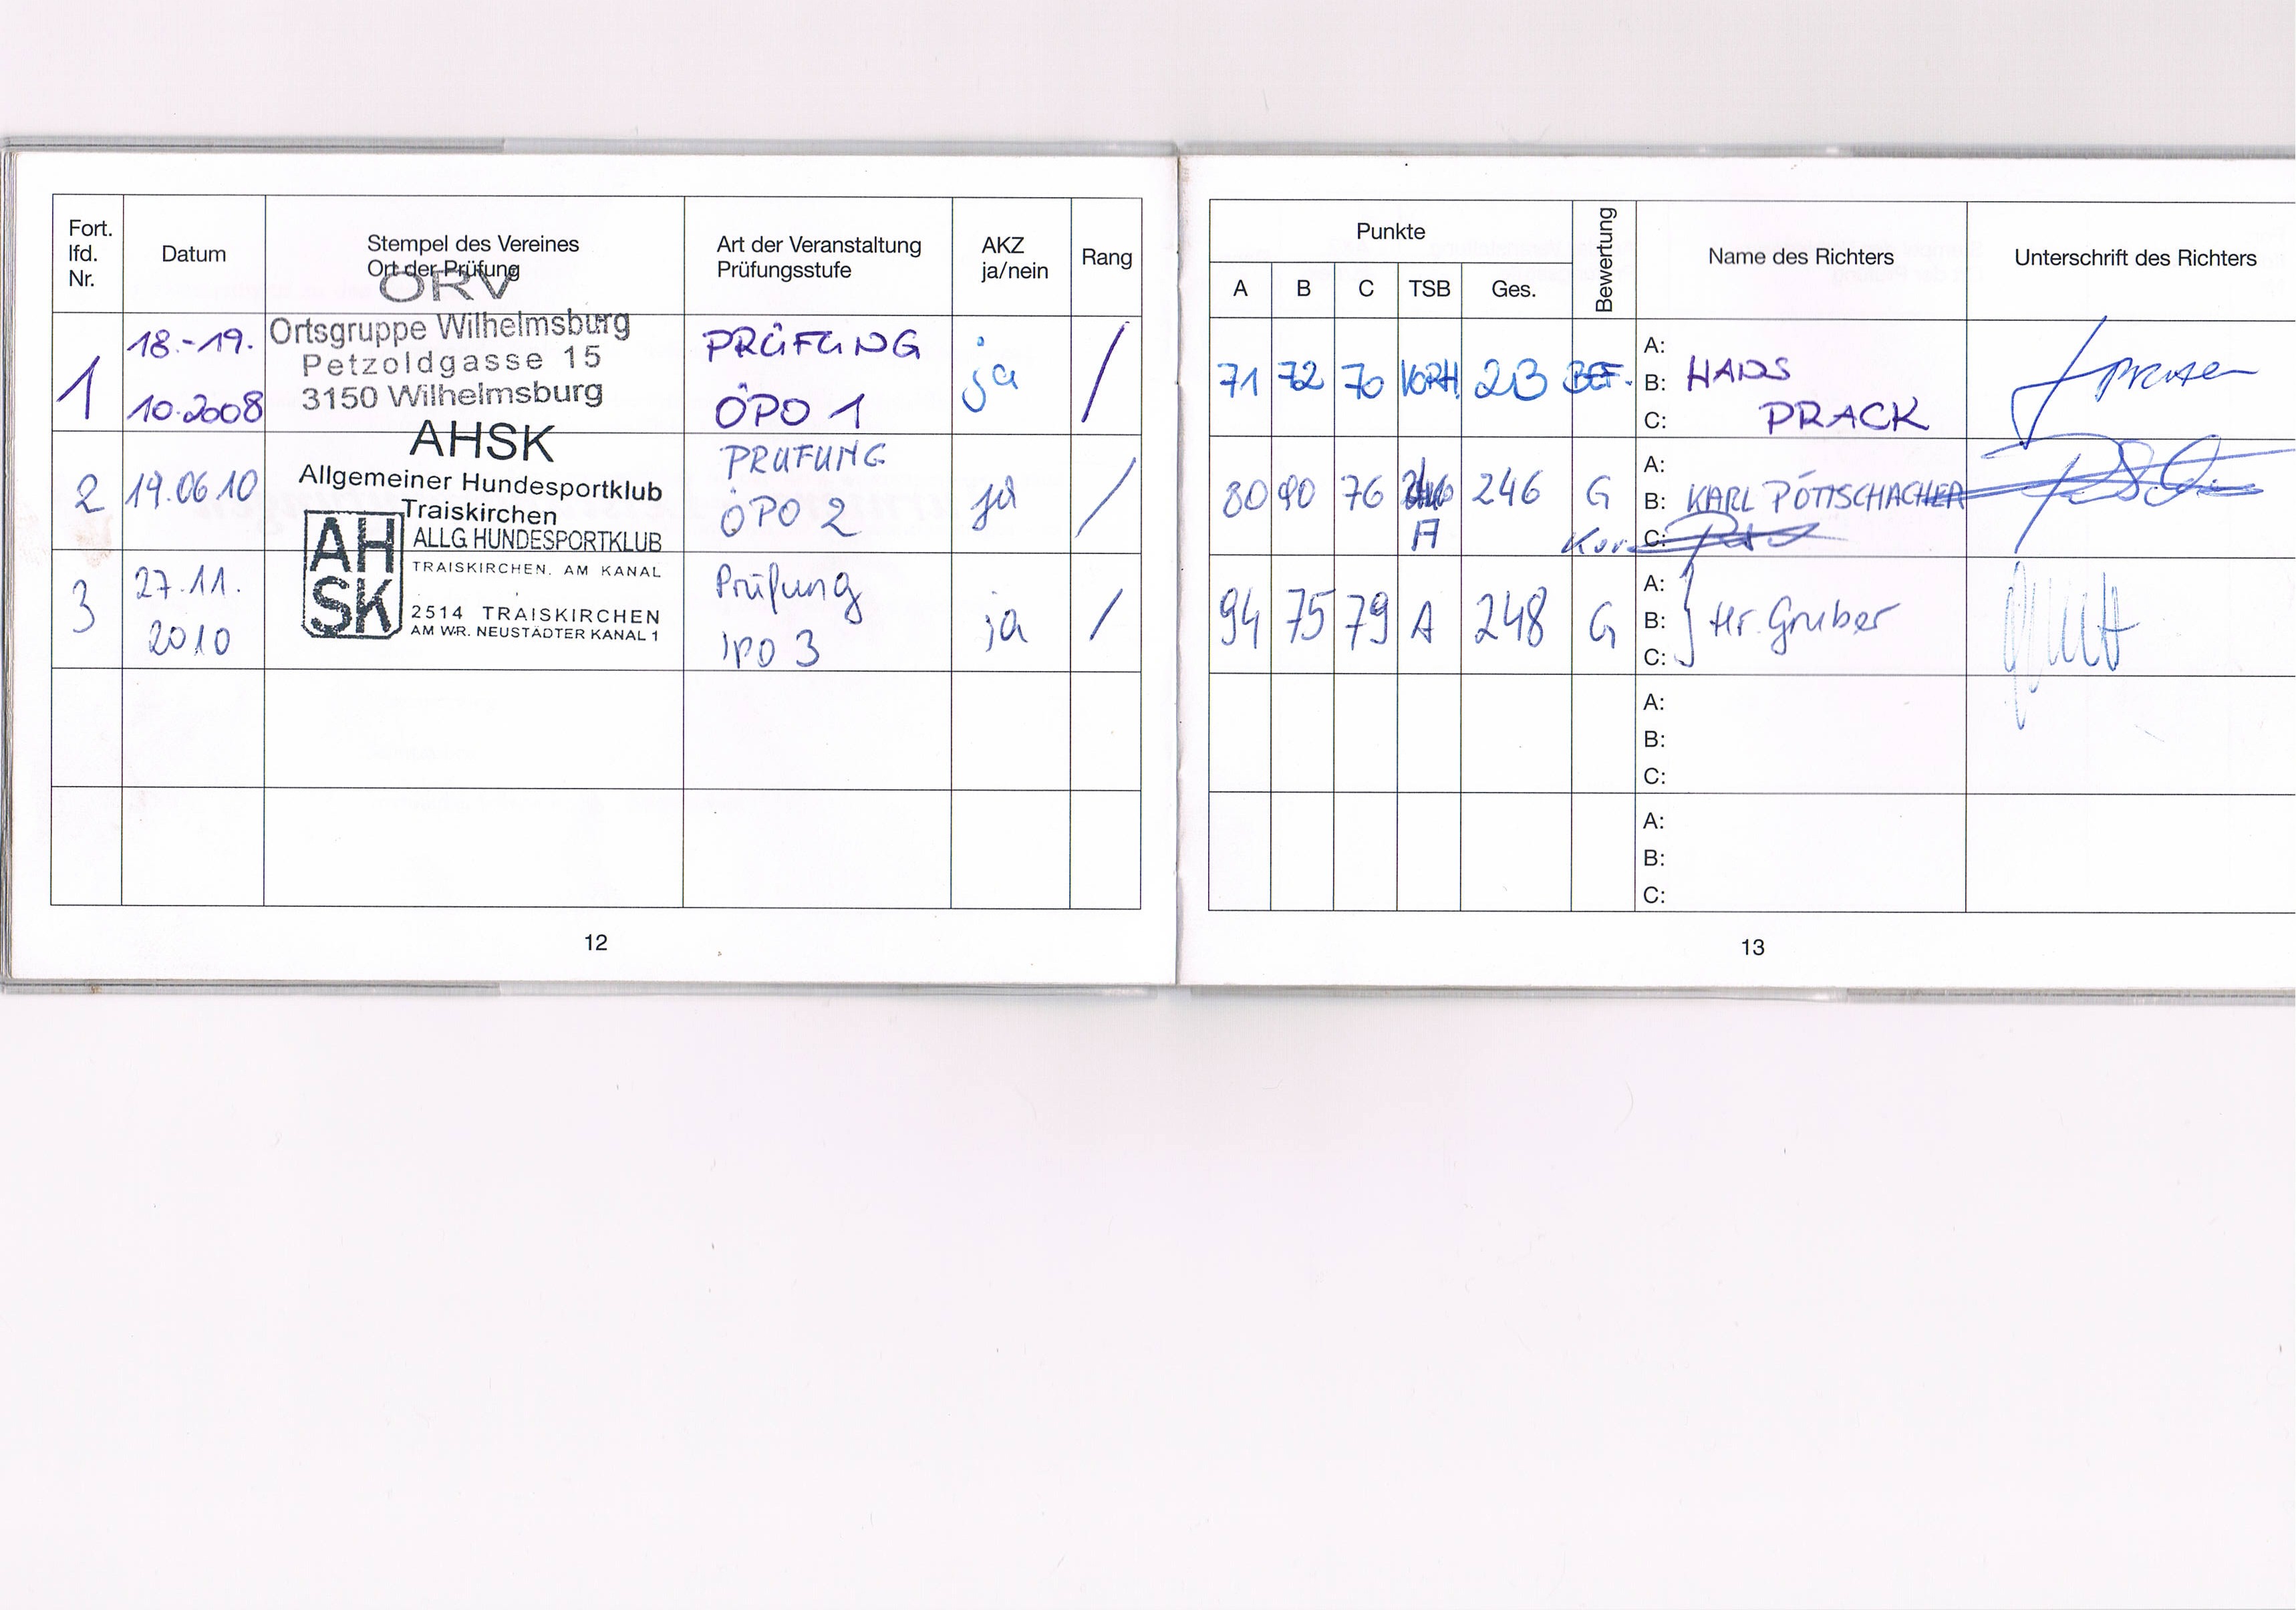 Fort. lfd. Nr.
Datum
Stempel des Vereines
Ort der Prüfung
Art der Veranstaltung
Prüfungsstufe
AKZ
ja/nein
Rang
1
18.-19.
10.2008
ÖRV
Ortsgruppe Wilhelmsburg
Petzoldgasse 15
3150 Wilhelmsburg
PRÜFUNG
ÖPO 1
ja
/
2
19.06.10
AHSK
Allgemeiner Hundesportklub
Traiskirchen
PRÜFUNG
ÖPO 2
ja
/
3
27.11.
2010
AH
SK
ALLG HUNDESPORTKLUB
TRAISKIRCHEN. AM KANAL
2514 TRAISKIRCHEN
AM WR. NEUSTÄDTER KANAL 1
Prüfung
IPO 3
ja
/
12
Punkte
A B C TSB Ges.
Bewertung
Name des Richters
Unterschrift des Richters
71 72 70 VORH. 213 BEF.
A:
B: HANS
C: PRACK
80 90 76 A 246 G
A:
B: KARL PÖTTSCHACHER
C:
94 75 79 A 248 G
A:
B: Hr. Gruber
C:
A:
B:
C:
A:
B:
C:
13